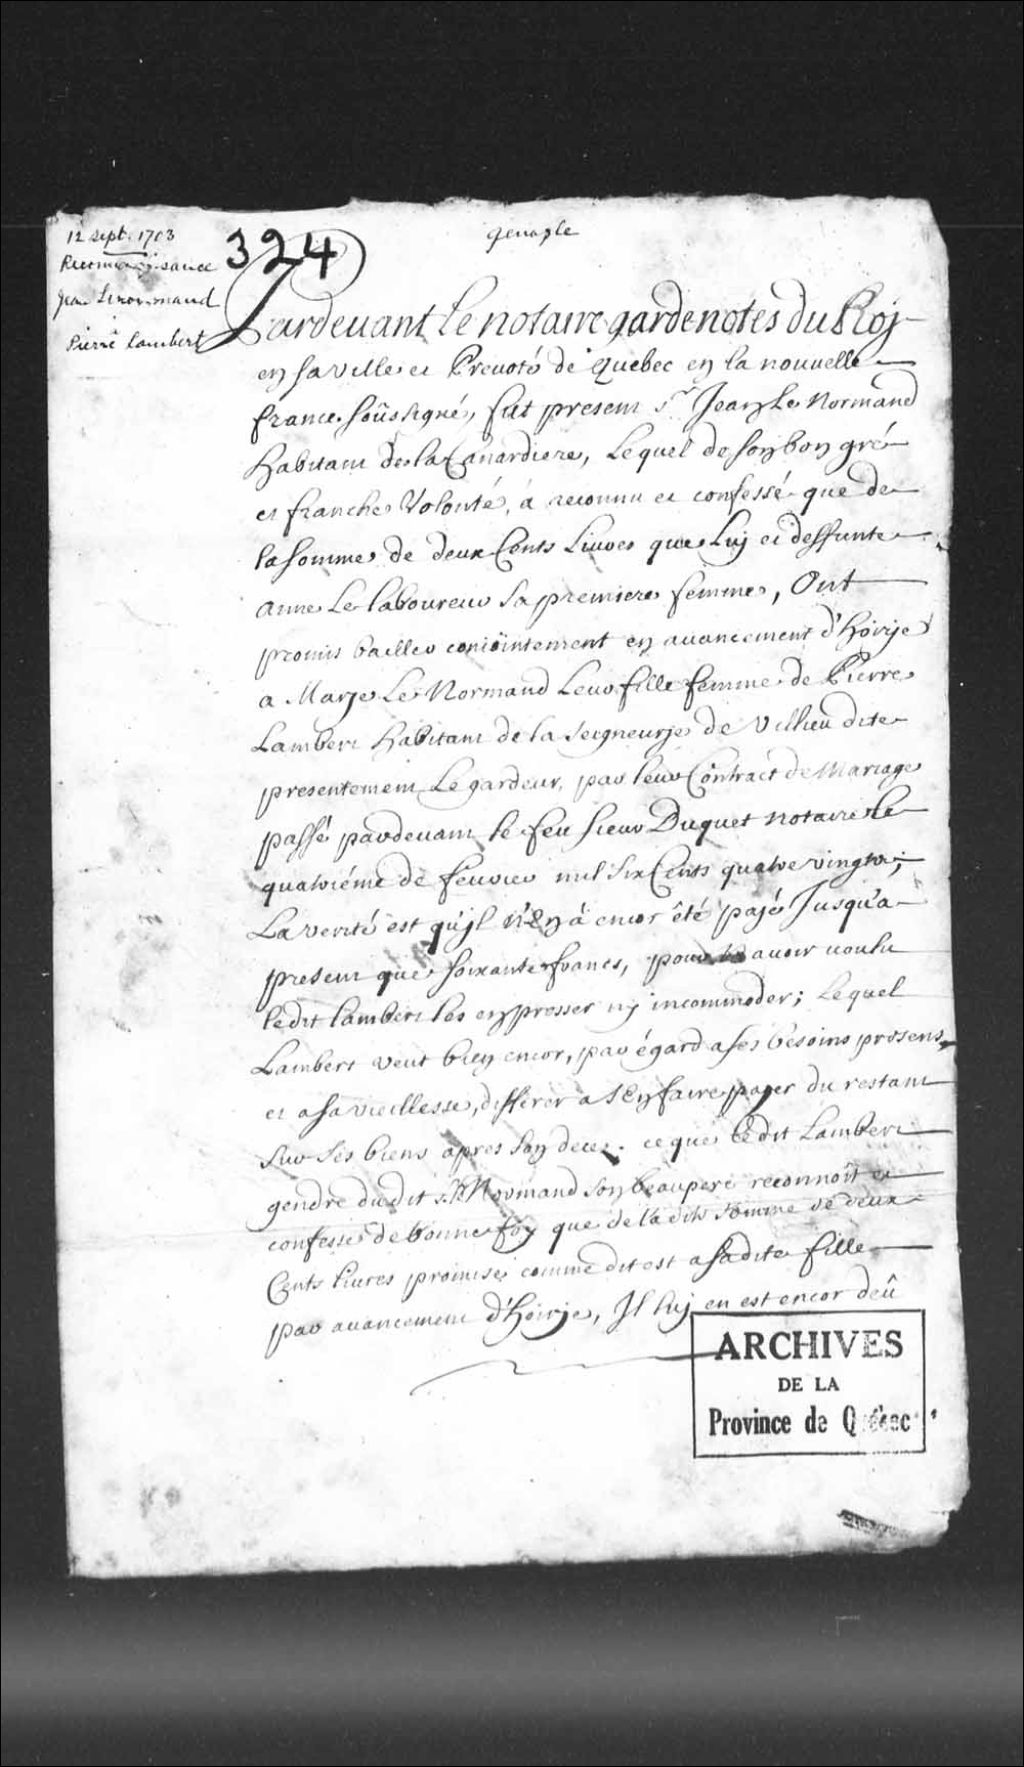 12 sept. 1703
Reconnaissance
Jean Lenormand
Pierre Lambert
324
genaple
Pardeuant Le notaire gardenotes du Roj
en sa ville et Preuoté de Quebec en la nouuelle
france soûsigné, fut present Sr. Jean Le Normand
habitant de la Canardiere, Lequel de son bon gré
et franche Volonté, à reconnu et confessé que de
la somme de deux Cents Liures que Luj et deffunte
anne Le laboureur sa premiere femme, Ont
promis bailler conioïntement en auancement d'hoirje
a Marje Le Normand Leur fille femme de Pierre
Lambert habitant de la seigneurje de Villieu dite
presentement Le gardeur, par leur Contract de Mariage
passé pardeuant le feu sieur Duquet notaire le
quatriéme de feurier mil six Cents quatre vingts;
La verité est qu'jl n'En à encor êté pajé Jusqu'a
present que soixante francs, pour auoir uoulu
ledit lambert les en presser nj incommoder; Lequel
Lambert veut bien encor, par égard a ses besoins presens,
et a sa vieillesse, differer a s'En faire payer du restant
sur ses biens apres son deces. ce que ledit Lambert
gendre dudit sr. Normand son beaupere reconnoît et
confesse de bonne foy que de la dite somme de deux
Cents liures promise comme dit est a sadite fille
par auancement d'hoirje, Il luj en est encor deû
ARCHIVES
DE LA
Province de Québec